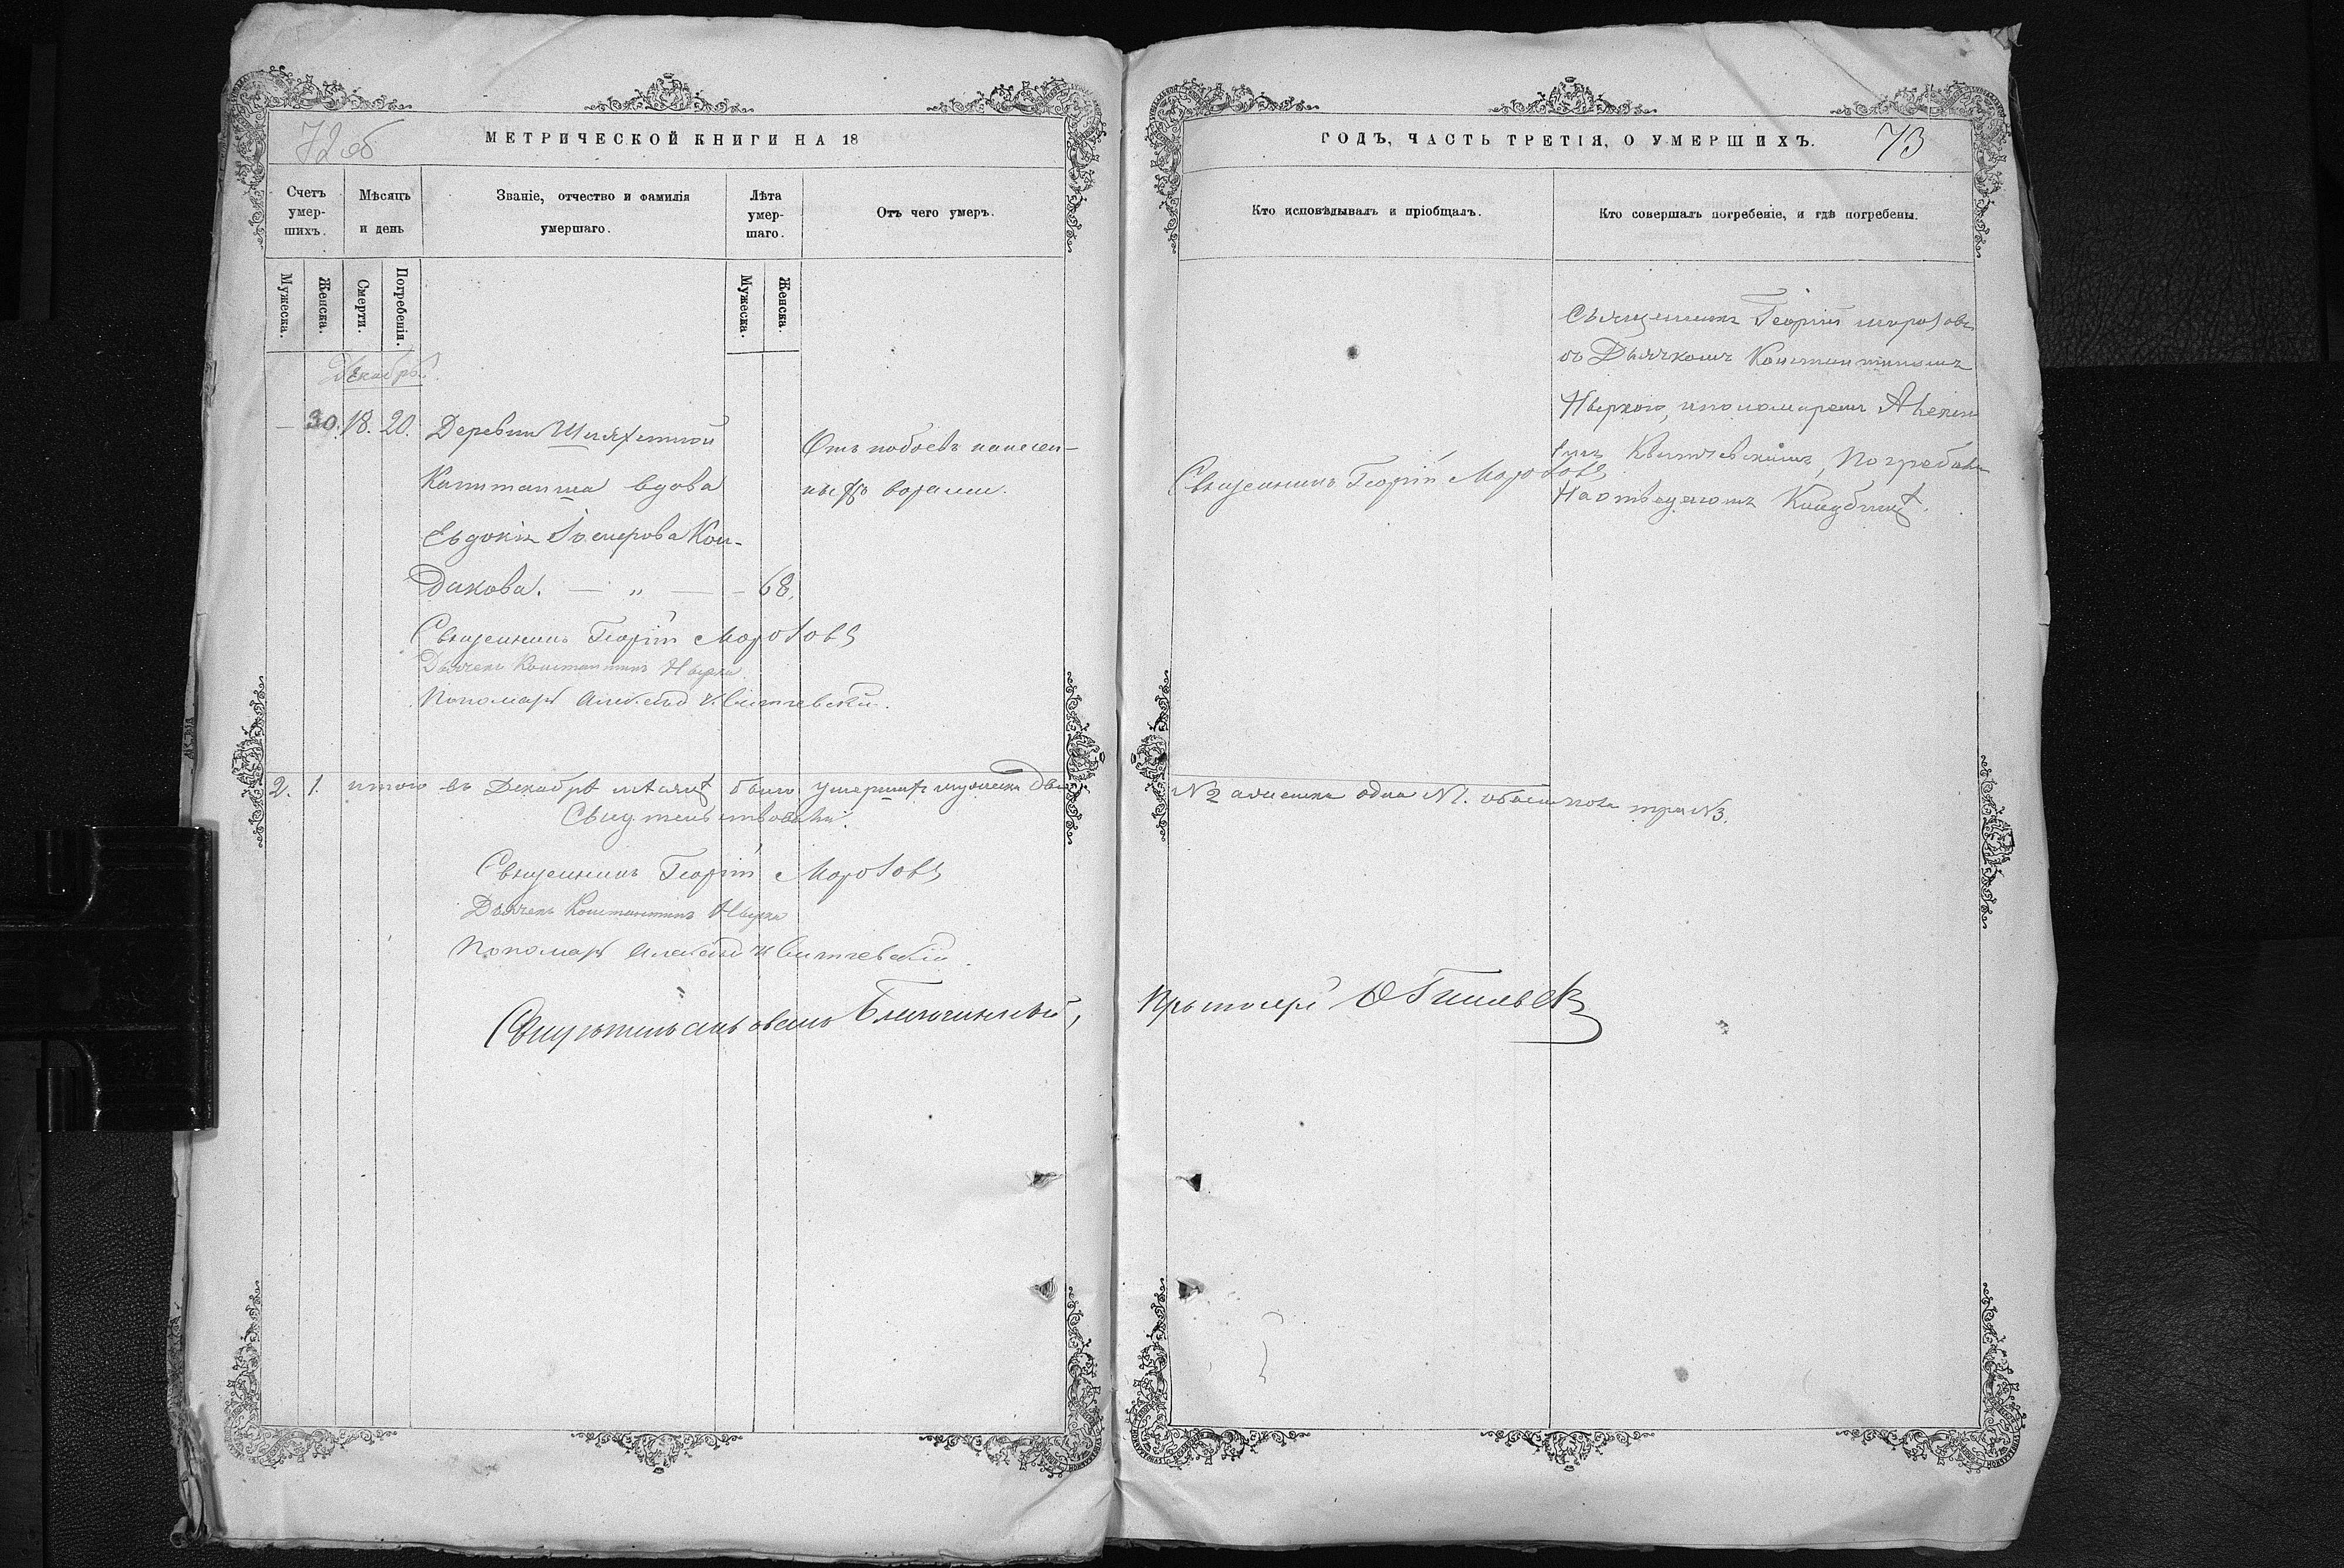 72 об
МЕТРИЧЕСКОЙ КНИГИ НА 18
Счетъ умер-
шихъ.
Мѣсяцъ
и день
Званіе, отчество и фамилія
умершаго.
Лѣта
умер-
шаго.
Отъ чего умеръ.
Мужеска.
Женска.
Смерти.
Погребенія.
Мужеска.
Женска.
Декабрь.
— 30. 18. 20. Деревни Шляхетной
Капитанша вдова
Евдокія
Кон-
дакова. — „ — — 68.
Отъ побоевъ нанесен-
ныхъ ворами.
Священникъ Георгій Морозовъ
Дьячекъ Константинъ
Пономарь Алексѣй
2. 1. итого въ Декабрѣ мѣсяцѣ было умершихъ мужеска два
Свидѣтельствовали:
Священникъ Георгій Морозовъ
Дьячекъ Константинъ
Пономарь Алексѣй
Свидѣтельствовалъ Благочинный,
ГОДЪ, ЧАСТЬ ТРЕТІЯ, О УМЕРШИХЪ.
73
Кто исповѣдывалъ и пріобщалъ.
Кто совершалъ погребеніе, и гдѣ погребены.
Священникъ Георгій Морозовъ
Священникъ Георгій Морозовъ
съ Дьячкомъ Константиномъ
и пономаремъ Алексѣ
Погребена
На отведенномъ Кладбищѣ.
№ 2 а женска одна № 1. обоего пола три № 3.
Протоіерей